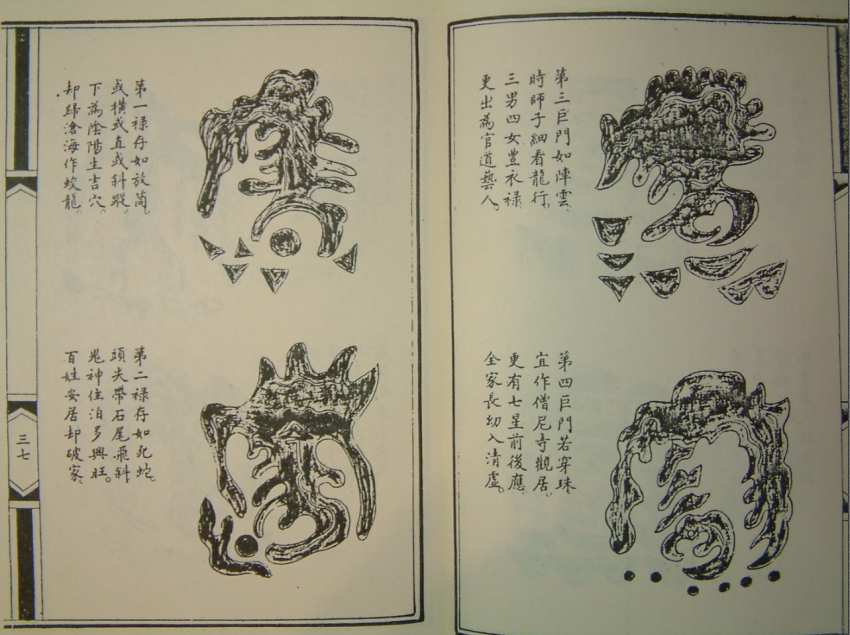 第三巨門如陣雲
時師子細看龍行。
三男四女豐衣祿
更出為官道藝人。
第四巨門若穿珠
宜作僧尼寺觀居。
更有七星前後應
全家長幼入清虛。
第一祿存如放蕳
或橫或直或斜蹤。
下為陰陽生吉穴
却歸滄海作蛟龍。
第二祿存如死蛇
頭尖帶石尾飛斜
鬼神住泊多興旺。
百姓安居却破家。
三七